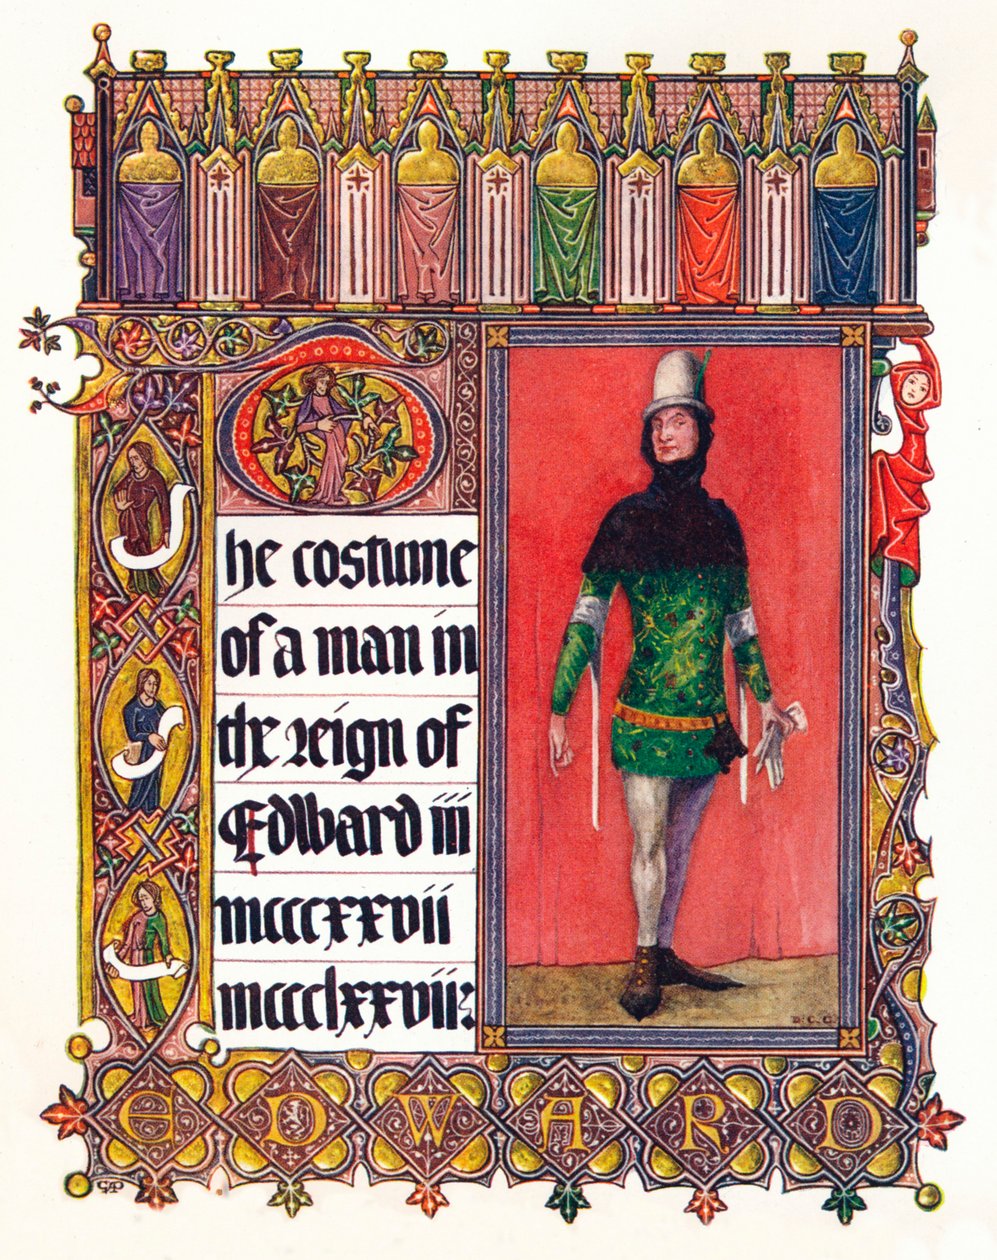 The costume
of a man in
the reign of
Edward iii
mcccxxvii
mccclxxvii:
D.C.C.
EDWARD